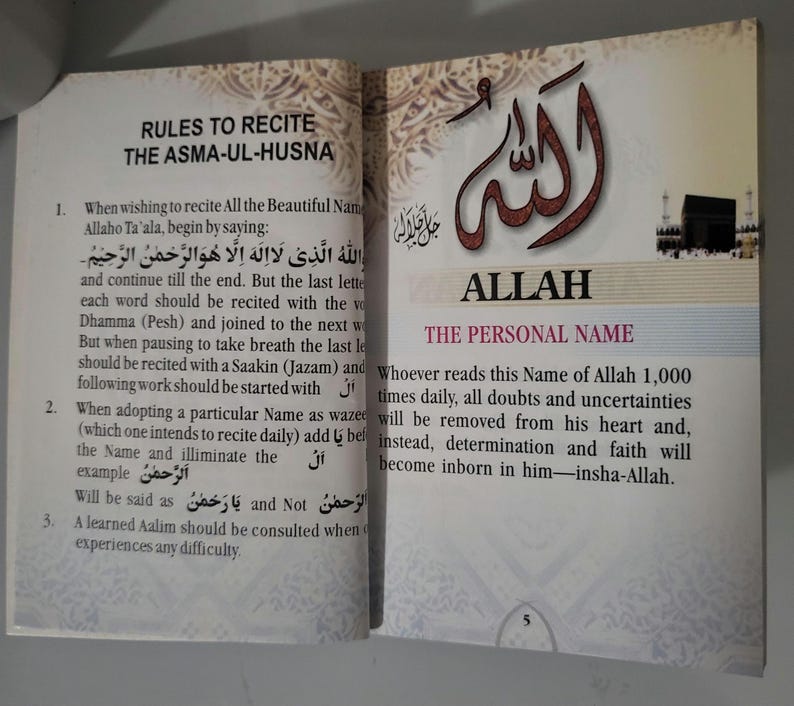 RULES TO RECITE
THE ASMA-UL-HUSNA
1. When wishing to recite All the Beautiful Nam
Allaho Ta'ala, begin by saying:
اللهُ الَّذِىْ لَا اِلٰهَ اِلَّا هُوَ الرَّحْمٰنُ الرَّحِيْمُ۔
and continue till the end. But the last lette
each word should be recited with the vo
Dhamma (Pesh) and joined to the next w
But when pausing to take breath the last le
should be recited with a Saakin (Jazam) and
following work should be started with اَلْ
2. When adopting a particular Name as wazee
(which one intends to recite daily) add يَا bef
the Name and illiminate the اَلْ
example اَلرَّحْمٰنُ
Will be said as يَا رَحْمٰنُ and Not اَلرَّحْمٰنُ
3. A learned Aalim should be consulted when o
experiences any difficulty.
اللهُ
جل جلاله
ALLAH
THE PERSONAL NAME
Whoever reads this Name of Allah 1,000
times daily, all doubts and uncertainties
will be removed from his heart and,
instead, determination and faith will
become inborn in him—insha-Allah.
5